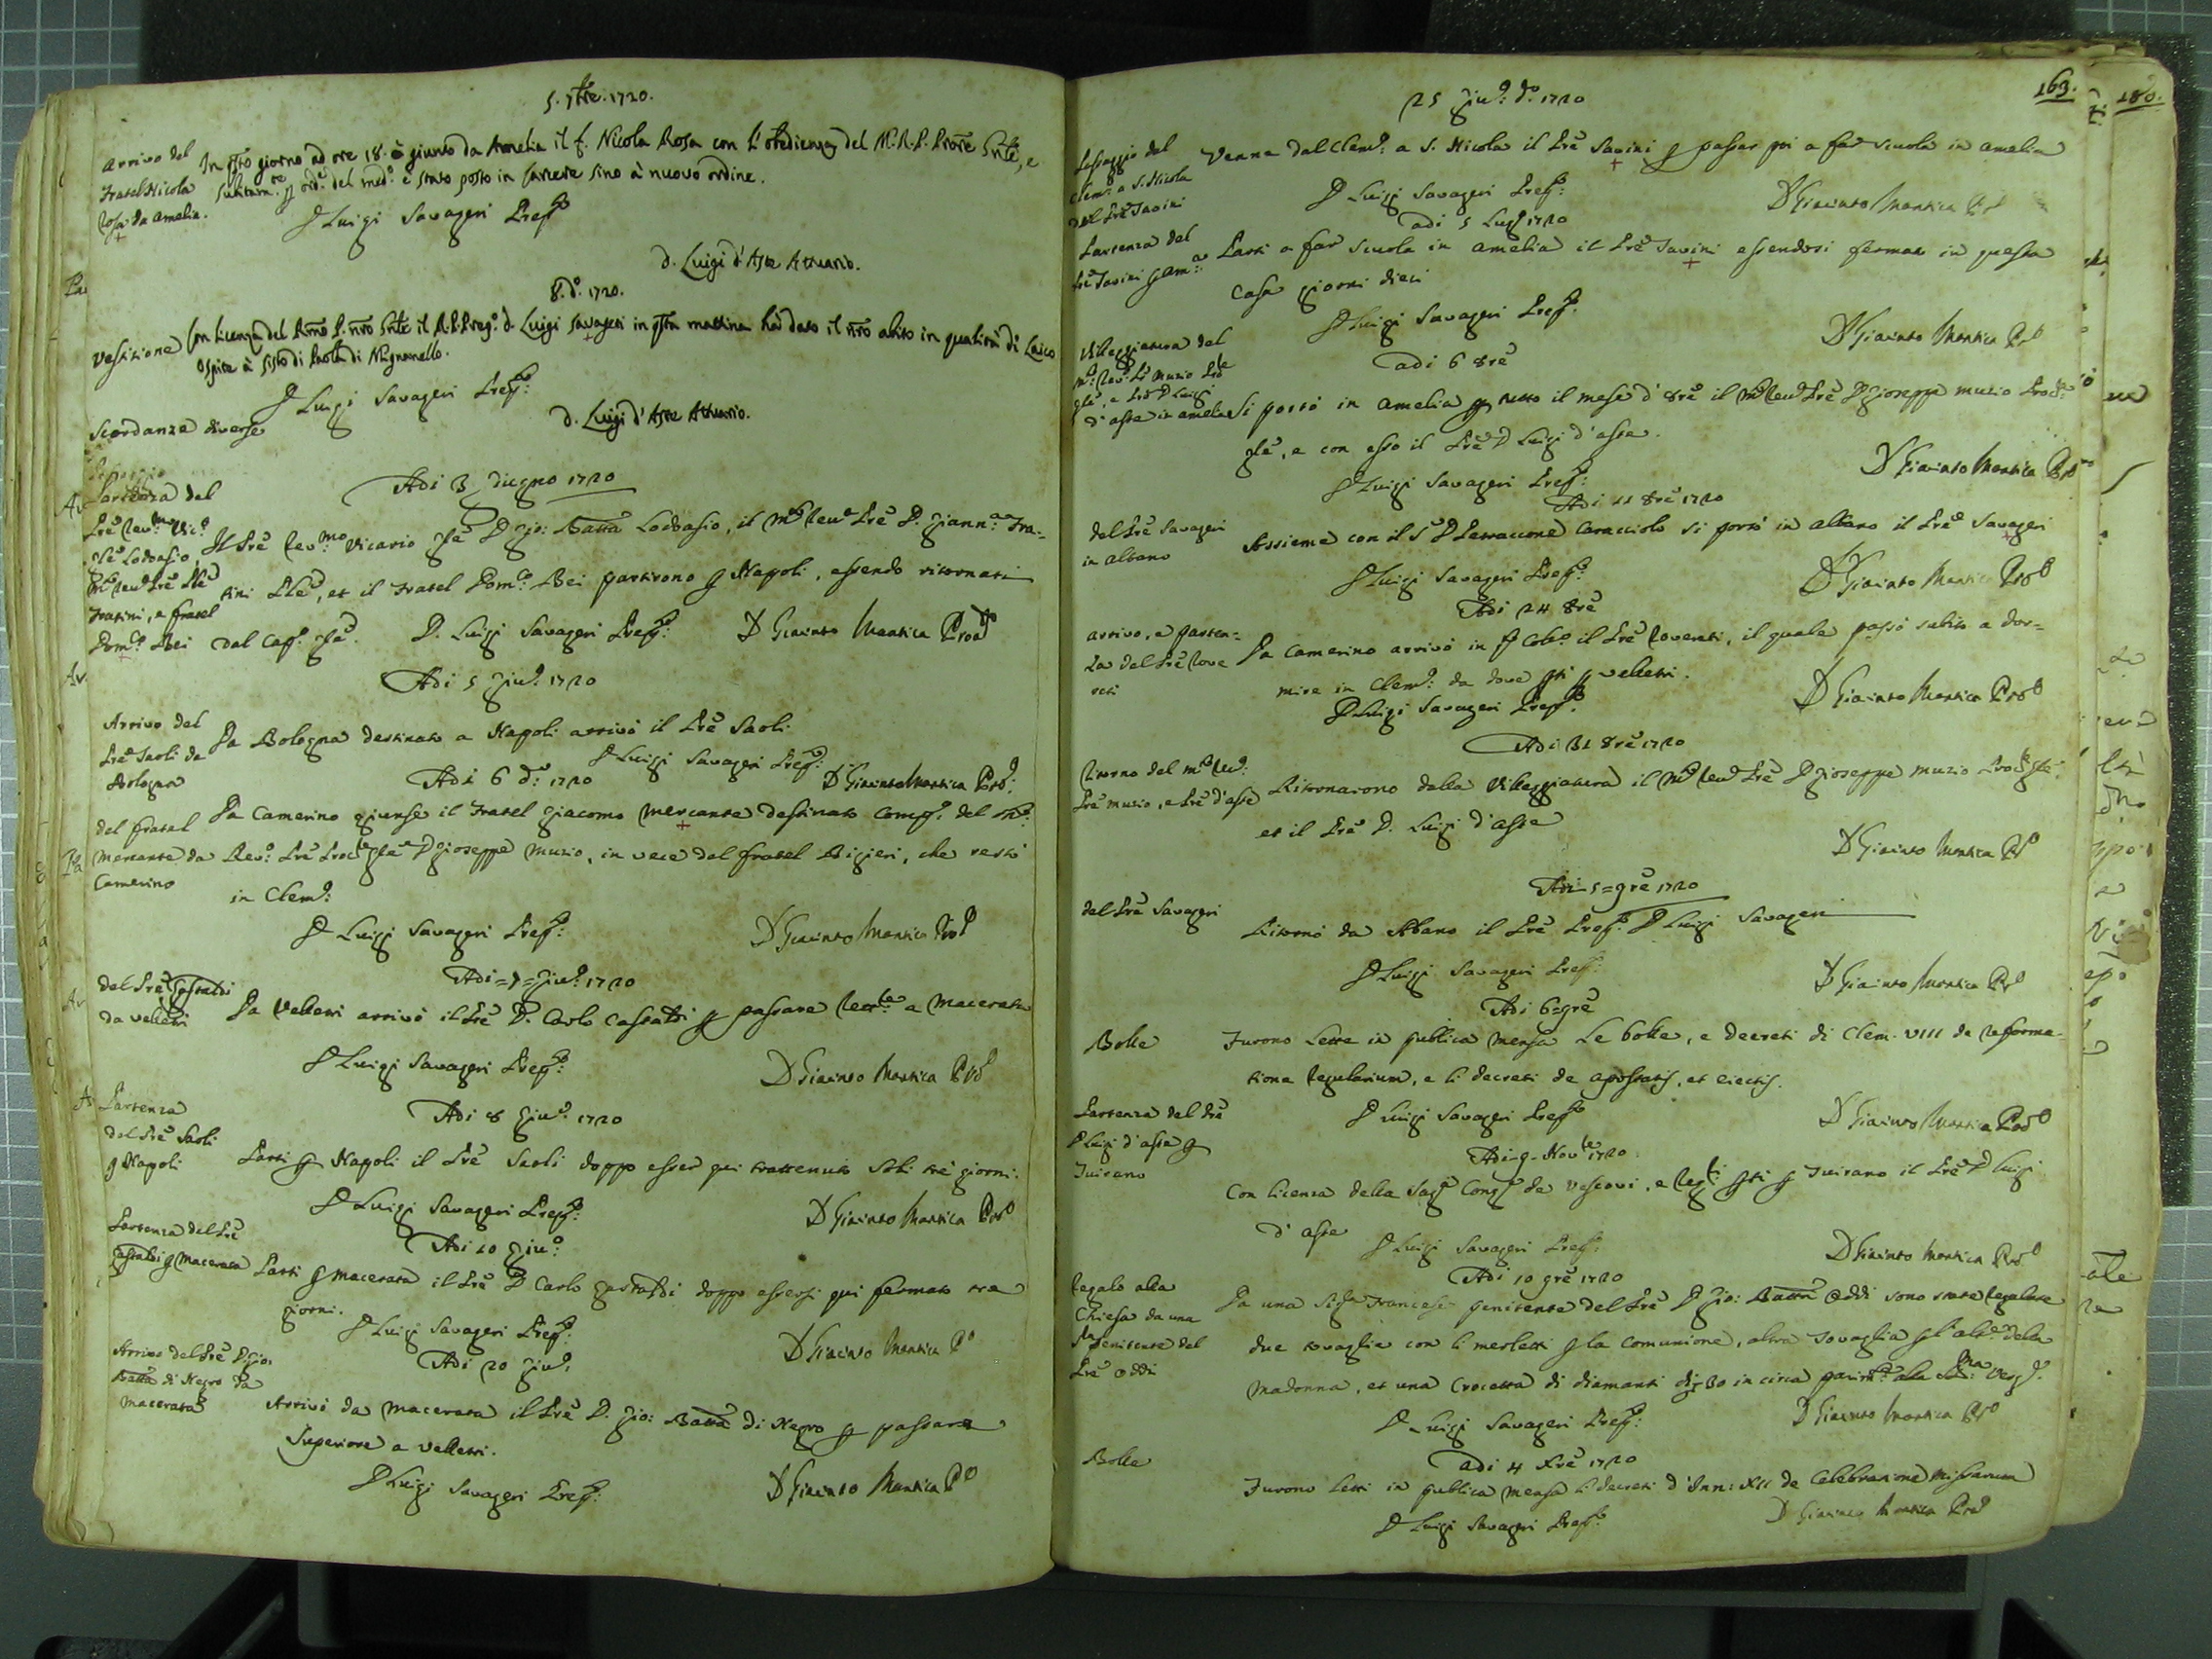 5. 7bre. 1720.
Arrivo del
Fratel Nicola
Rosa da Amelia.
In qsto giorno ad ore 18. è giunto da Amelia il f. Nicola Rosa con l'obedienza del M.R.P. Prore Gnle, e
subitam.te p ord.e del med.o è stato posto in carcere sino à nuovo ordine.
D Luigi Savageri Prep.to
d. Luigi d'Aste Attuario.
8. d.o 1720.
Vestitione
Con licenza del Rmo P. nro Gnle il R.P. Prep.o d. Luigi Savageri in qsta mattina hà dato il nro abito in qualità di Laico
Ospite à Sisto di Paola di Mugnanello.
D Luigi Savageri Prep.to
d. Luigi d'Aste Attuario.
Scordanze diverse
Adi 3 Giugno 1720
Partenza del
Pre Rev.mo Vic.o
Gle Lodoasio,
M.o Rev.o Pre
Fratini, e fratel
Dom.co Bei
Il Pre Rev.mo Vicario Gle D Gio: Batta Lodoasio, il M.o Rev.o Pre D. Giann.a Fra-
tini, et il Fratel Dom.co Bei partirono p Napoli, essendo ritornati
dal Cap.o Gle.
D. Luigi Savageri Prep.to
D Giacinto Mantica Pro
Adi 5 Giu.o 1720
Arrivo del
Pre Saoli da
Bologna
Da Bologna destinato a Napoli arrivò il Pre Saoli
D Luigi Savageri Prep.to
D Giacinto Mantica Pro
Adi 6 d.o 1720
del fratel
Mercante da
Camerino
Da Camerino giunse il Fratel Giacomo Mercante destinato Comp.o del M.o
Rev.o Pre Proc.re Gle D Gioseppe Muzio, in vece del fratel Rigieri, che restò
in Clem.o
D Luigi Savageri Prep.to
D Giacinto Mantica Pro
Adi = 7 = Giu.o 1720
del Pre Gastaldi
da velletri
Da Velletri arrivò il Pre D. Carlo Castaldi p passare a Macerata
D Luigi Savageri Prep.to
D Giacinto Mantica Pro
Adi 8 Giu.o 1720
Partenza
del Pre Saoli
p Napoli
Partì p Napoli il Pre Saoli doppo esser qui trattenuto soli trè giorni.
D Luigi Savageri Prep.to
D Giacinto Mantica Pro
Adi 10 Giu.o
Partenza del Pre
Gastaldi p Macerata
Partì p Macerata il Pre D Carlo Gastaldi doppo essersi qui fermato tre
giorni.
D Luigi Savageri Prep.to
D Giacinto Mantica Pro
Adi 20 Giu.o
Arrivo del Pre D Gio:
Batta di Negro da
Macerata
Arrivò da Macerata il Pre D. Gio: Batta di Negro p passare
Superiore a velletri.
D Luigi Savageri Prep.to
D Giacinto Mantica Pro
163.
180.
25 Giu.o d.o 1720
Passaggio del
Clem.o a S. Nicola
del Pre Savini
Venne dal Clem.o a S. Nicola il Pre Savini p passar poi a far scuola in Amelia
D Luigi Savageri Prep.to
D Giacinto Mantica Pro
Adi 5 Lug.o 1720
Partenza del
Pre Savini p Am.a
Partì a far scuola in Amelia il Pre Savini essendosi fermato in questa
Casa giorni dieci
D Luigi Savageri Prep.to
D Giacinto Mantica Pro
Adi 6 8re
Villeggiatura del
M.o Rev.o Pre Muzio Proc.re
Gle, e Pre D Luigi
d'aste in amelia
Si portò in Amelia p tutto il mese d'8re il M.o Rev.o Pre D Gioseppe Muzio Proc.re
gle, e con esso il Pre D Luigi d'aste.
D Luigi Savageri Prep.to
D Giacinto Mantica Pro
Adi 11 8re 1720
del Pre Savageri
in albano
Assieme con il S.r D Petraccone Caracciolo si portò in albano il Pre Savageri
D Luigi Savageri Prep.to
D Giacinto Mantica Pro
Adi 24 8re
arrivo, e parten-
za del Pre Rove
reti
Da Camerino arrivò in q Coll.o il Pre Rovereti, il quale passò subito a dor-
mire in Clem.o da dove ptì p velletri.
D Luigi Savageri Prep.to
D Giacinto Mantica Pro
Adi 31 8re 1720
Ritorno del M.o Rev.o
Pre Muzio, e Pre d'aste
Ritornarono dalla Villeggiatura il M.o Rev.o Pre D Gioseppe Muzio Proc.re Gle
et il Pre D. Luigi d'aste
D Giacinto Mantica Pro
Adi = 5 = 9re 1720
del Pre Savageri
Ritornò da Albano il Pre Prep.to D Luigi Savageri
D Luigi Savageri Prep.to
D Giacinto Mantica Pro
Adi 6 9re
Bolle
Furono lette in publica mensa le bolle, e decreti di Clem. VIII de reforma-
tione Regularium, e li decreti de apostatis, et eiectis.
D Luigi Savageri Prep.to
D Giacinto Mantica Pro
Adi 9 Nov.re 1720
Partenza del Pre
D Luigi d'aste p
Con licenza della Sag.a Cong.e de vescovi, e Reg.ri ptì p il Pre D Luigi
d'aste
D Luigi Savageri Prep.to
D Giacinto Mantica Pro
Adi 10 9re 1720
Regalo alla
Chiesa da una
Penitente del
Pre Oddi
Da una Sig.ra Francese penitente del Pre D Gio: Batta Oddi sono state regalate
due tovaglie con li merletti p la comunione, altra tovaglia p l'alt.e della
Madonna, et una Crocetta di diamanti di 30 in circa parim.te alla Verg.e
D Luigi Savageri Prep.to
D Giacinto Mantica Pro
Adi 4 Xre 1720
Bolle
Furono letti in publica mensa li decreti d'Inn: XII de Celebratione Missarum
D Luigi Savageri Prep.to
D Giacinto Mantica Pro